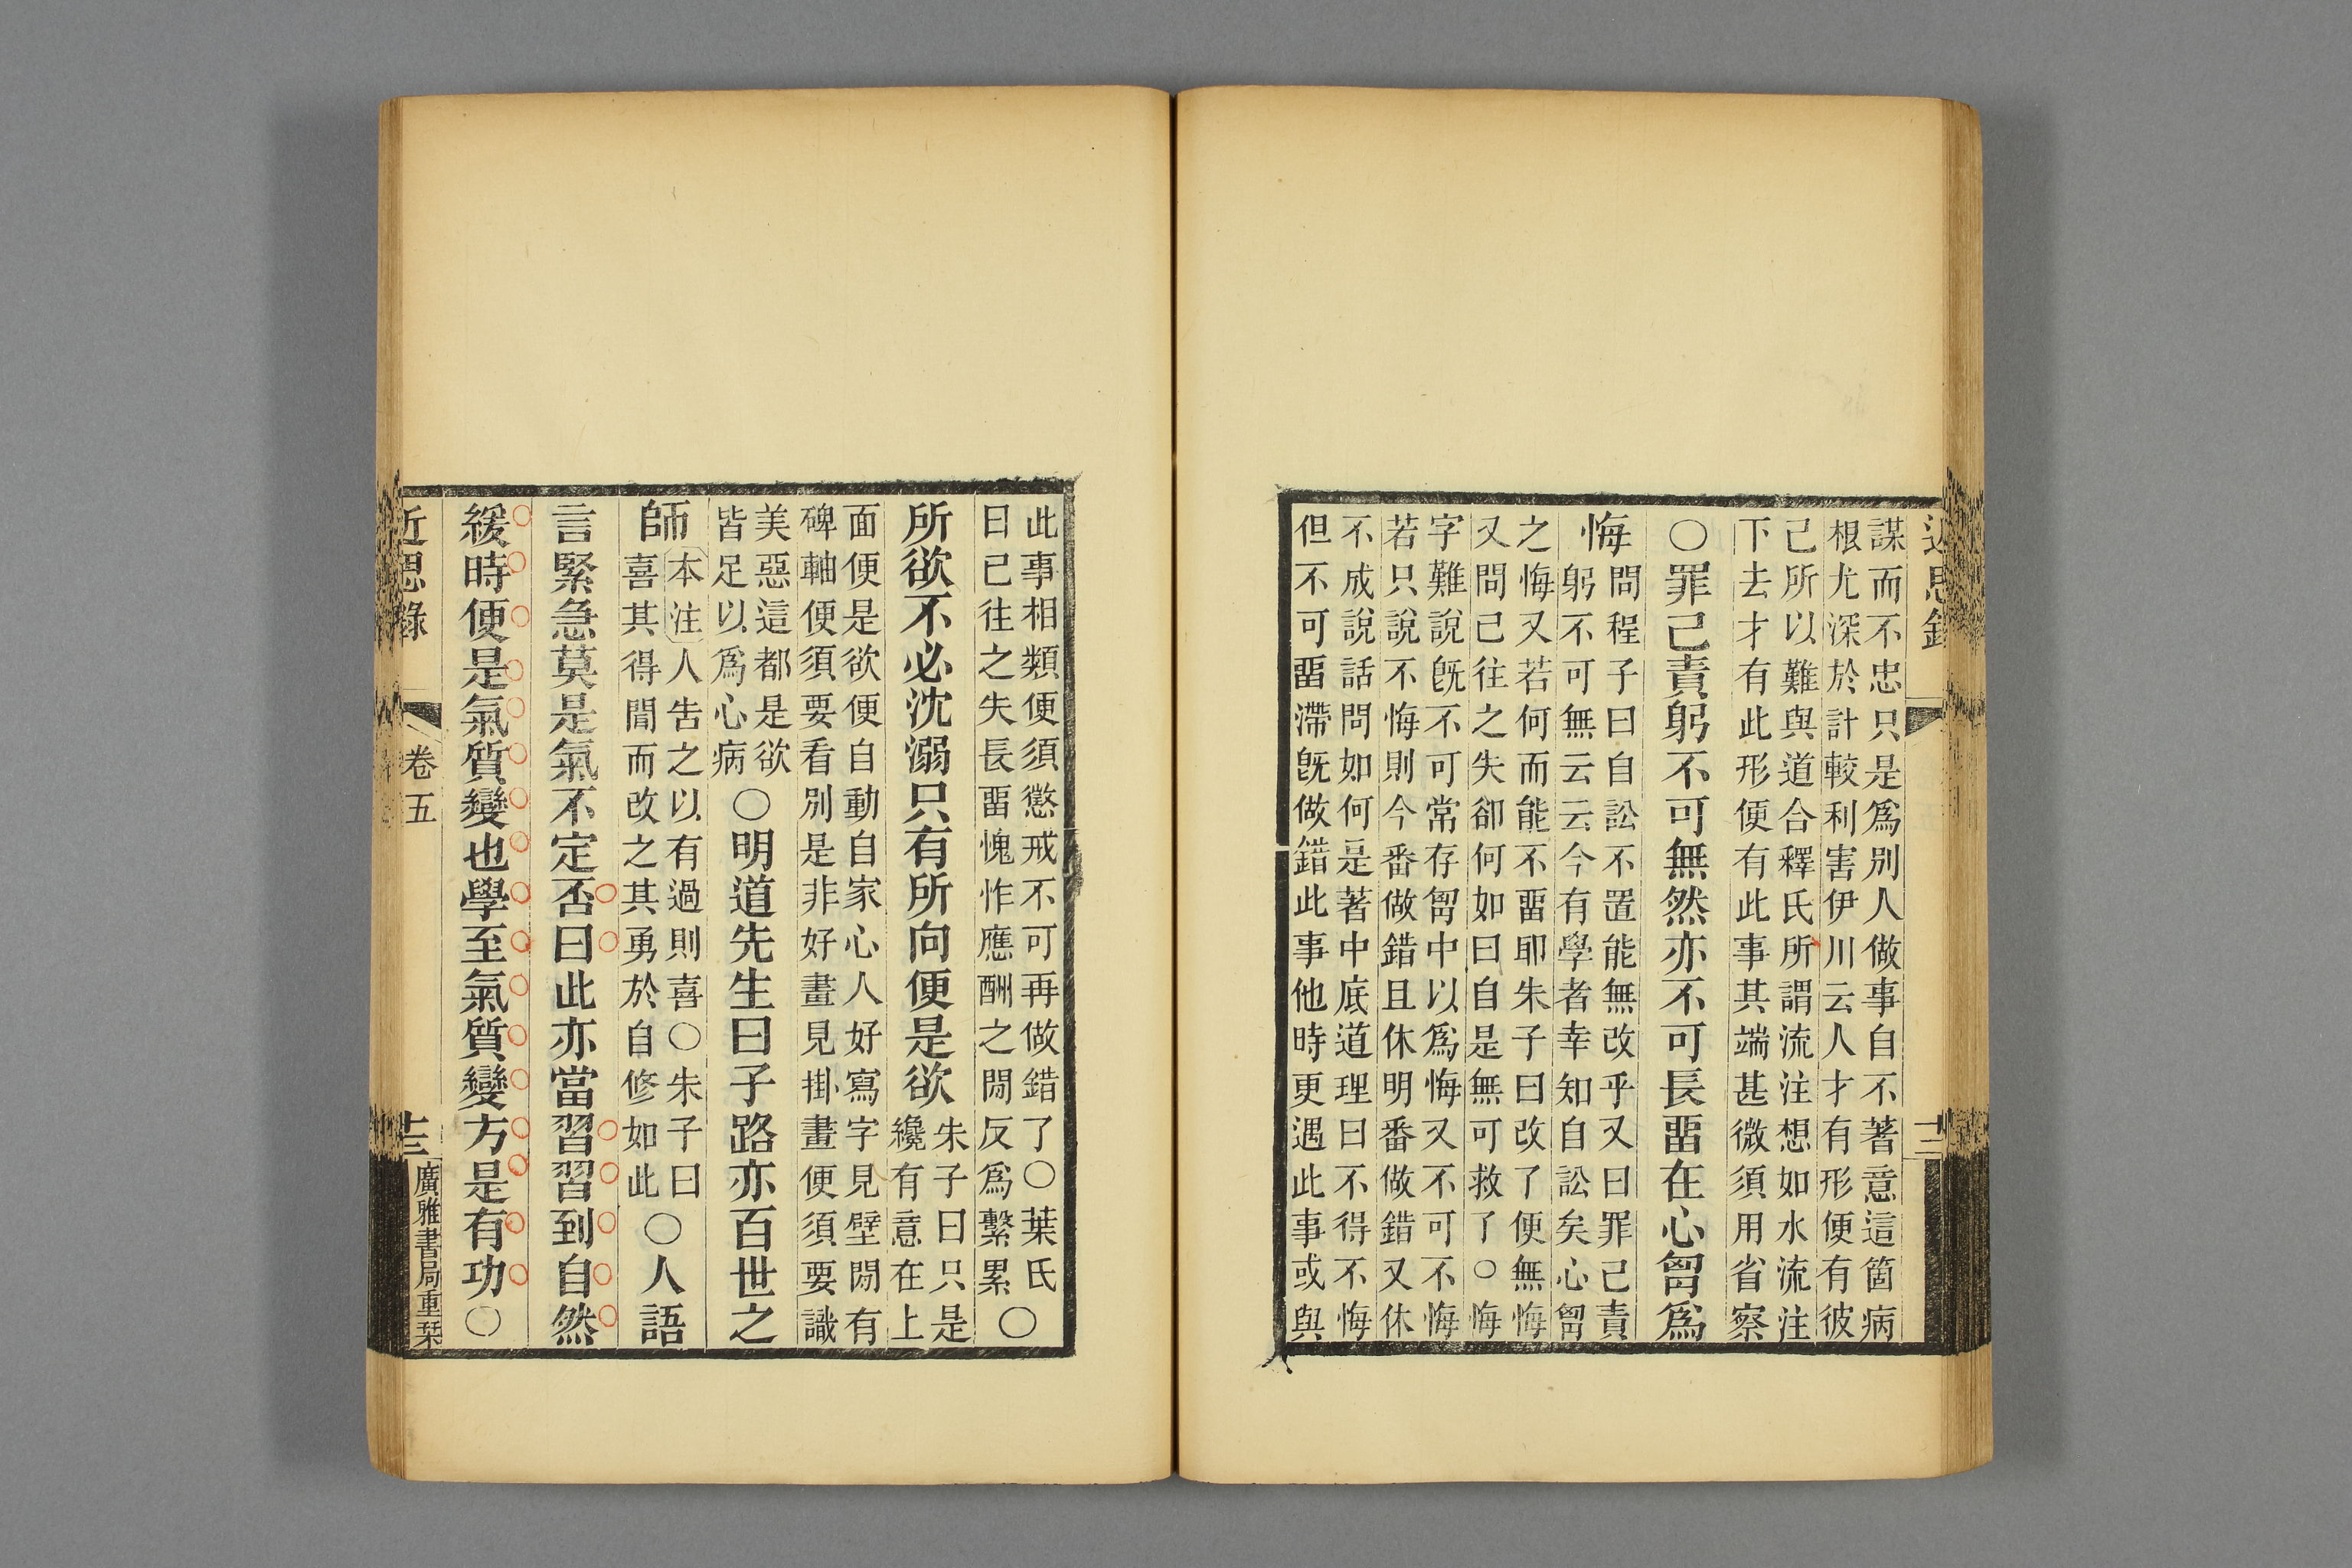 近思錄
十二
謀而不忠只是爲別人做事自不著意這箇病
根尤深於計較利害伊川云人才有形便有彼
己所以難與道合釋氏所謂流注想如水流注
下去才有此形便有此事其端甚微須用省察
○罪己責躬不可無然亦不可長畱在心胷爲
悔
問程子曰自訟不置能無改乎又曰罪己責
躬不可無云云今有學者幸知自訟矣心胷
之悔又若何而能不畱耶朱子曰改了便無悔
又問已往之失卻何如曰自是無可救了○悔
字難說旣不可常存胷中以爲悔又不可不悔
若只說不悔則今番做錯且休明番做錯又休
不成說話問如何是著中底道理曰不得不悔
但不可畱滯旣做錯此事他時更遇此事或與
此事相類便須懲戒不可再做錯了○葉氏
曰已往之失長畱愧怍應酬之閒反爲繫累
○
所欲不必沈溺只有所向便是欲
朱子曰只是
纔有意在上
面便是欲便自動自家心人好寫字見壁閒有
碑軸便須要看別是非好畫見掛畫便須要識
美惡這都是欲
皆足以爲心病
○明道先生曰子路亦百世之
師
本注人告之以有過則喜○朱子曰
喜其得聞而改之其勇於自修如此
○人語
言緊急莫是氣不定否曰此亦當習習到自然
緩時便是氣質變也學至氣質變方是有功○
近思錄
卷五
十三
廣雅書局重栞